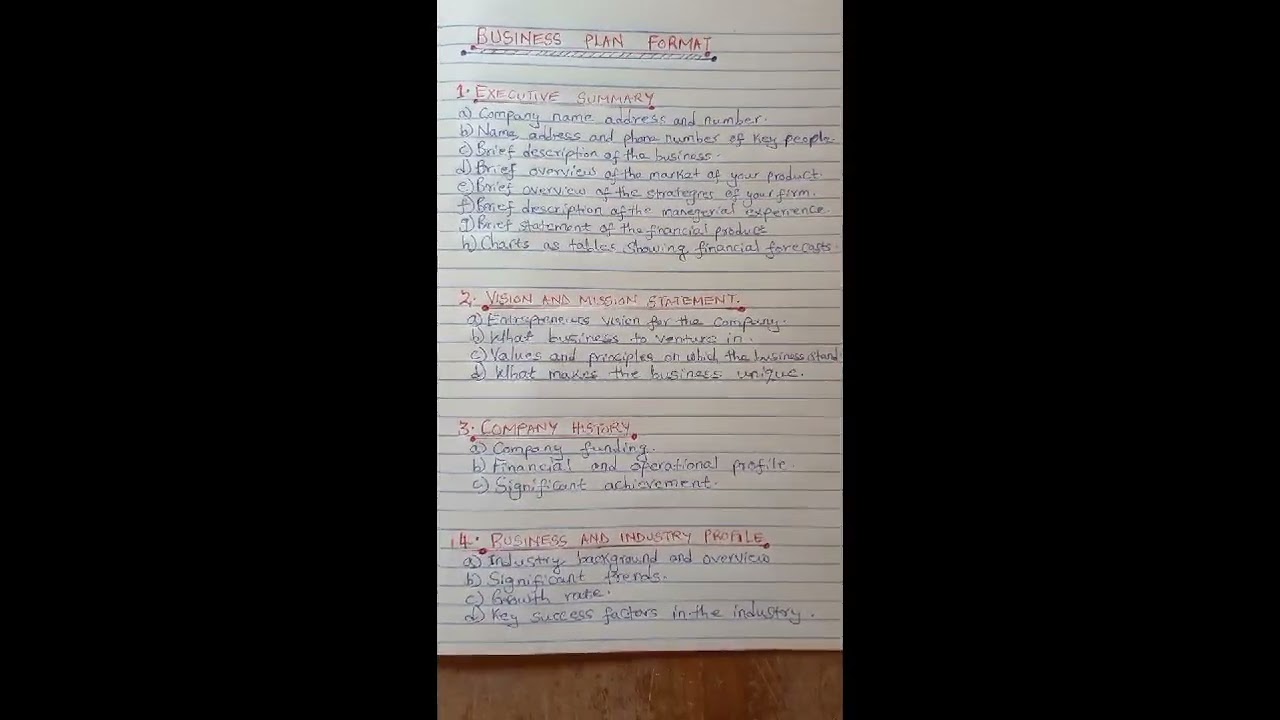 BUSINESS PLAN FORMAT
1. EXECUTIVE SUMMARY
a) Company name address and number.
b) Name, address and phone number of key people.
c) Brief description of the business.
d) Brief overview of the market of your product.
e) Brief overview of the strategies of your firm.
f) Brief description of the manegerial experience.
g) Brief statement of the financial product
h) Charts as tables showing financial forecasts.
2. VISION AND MISSION STATEMENT.
a) Entrepreneurs vision for the company.
b) What business to venture in.
c) Values and principles on which the business stand
d) What makes the business unique.
3. COMPANY HISTORY
a) Company funding.
b) Financial and operational profile.
c) Significant achievement.
4. BUSINESS AND INDUSTRY PROFILE
a) Industry background and overview
b) Significant trends.
c) Growth rate.
d) Key success factors in the industry.